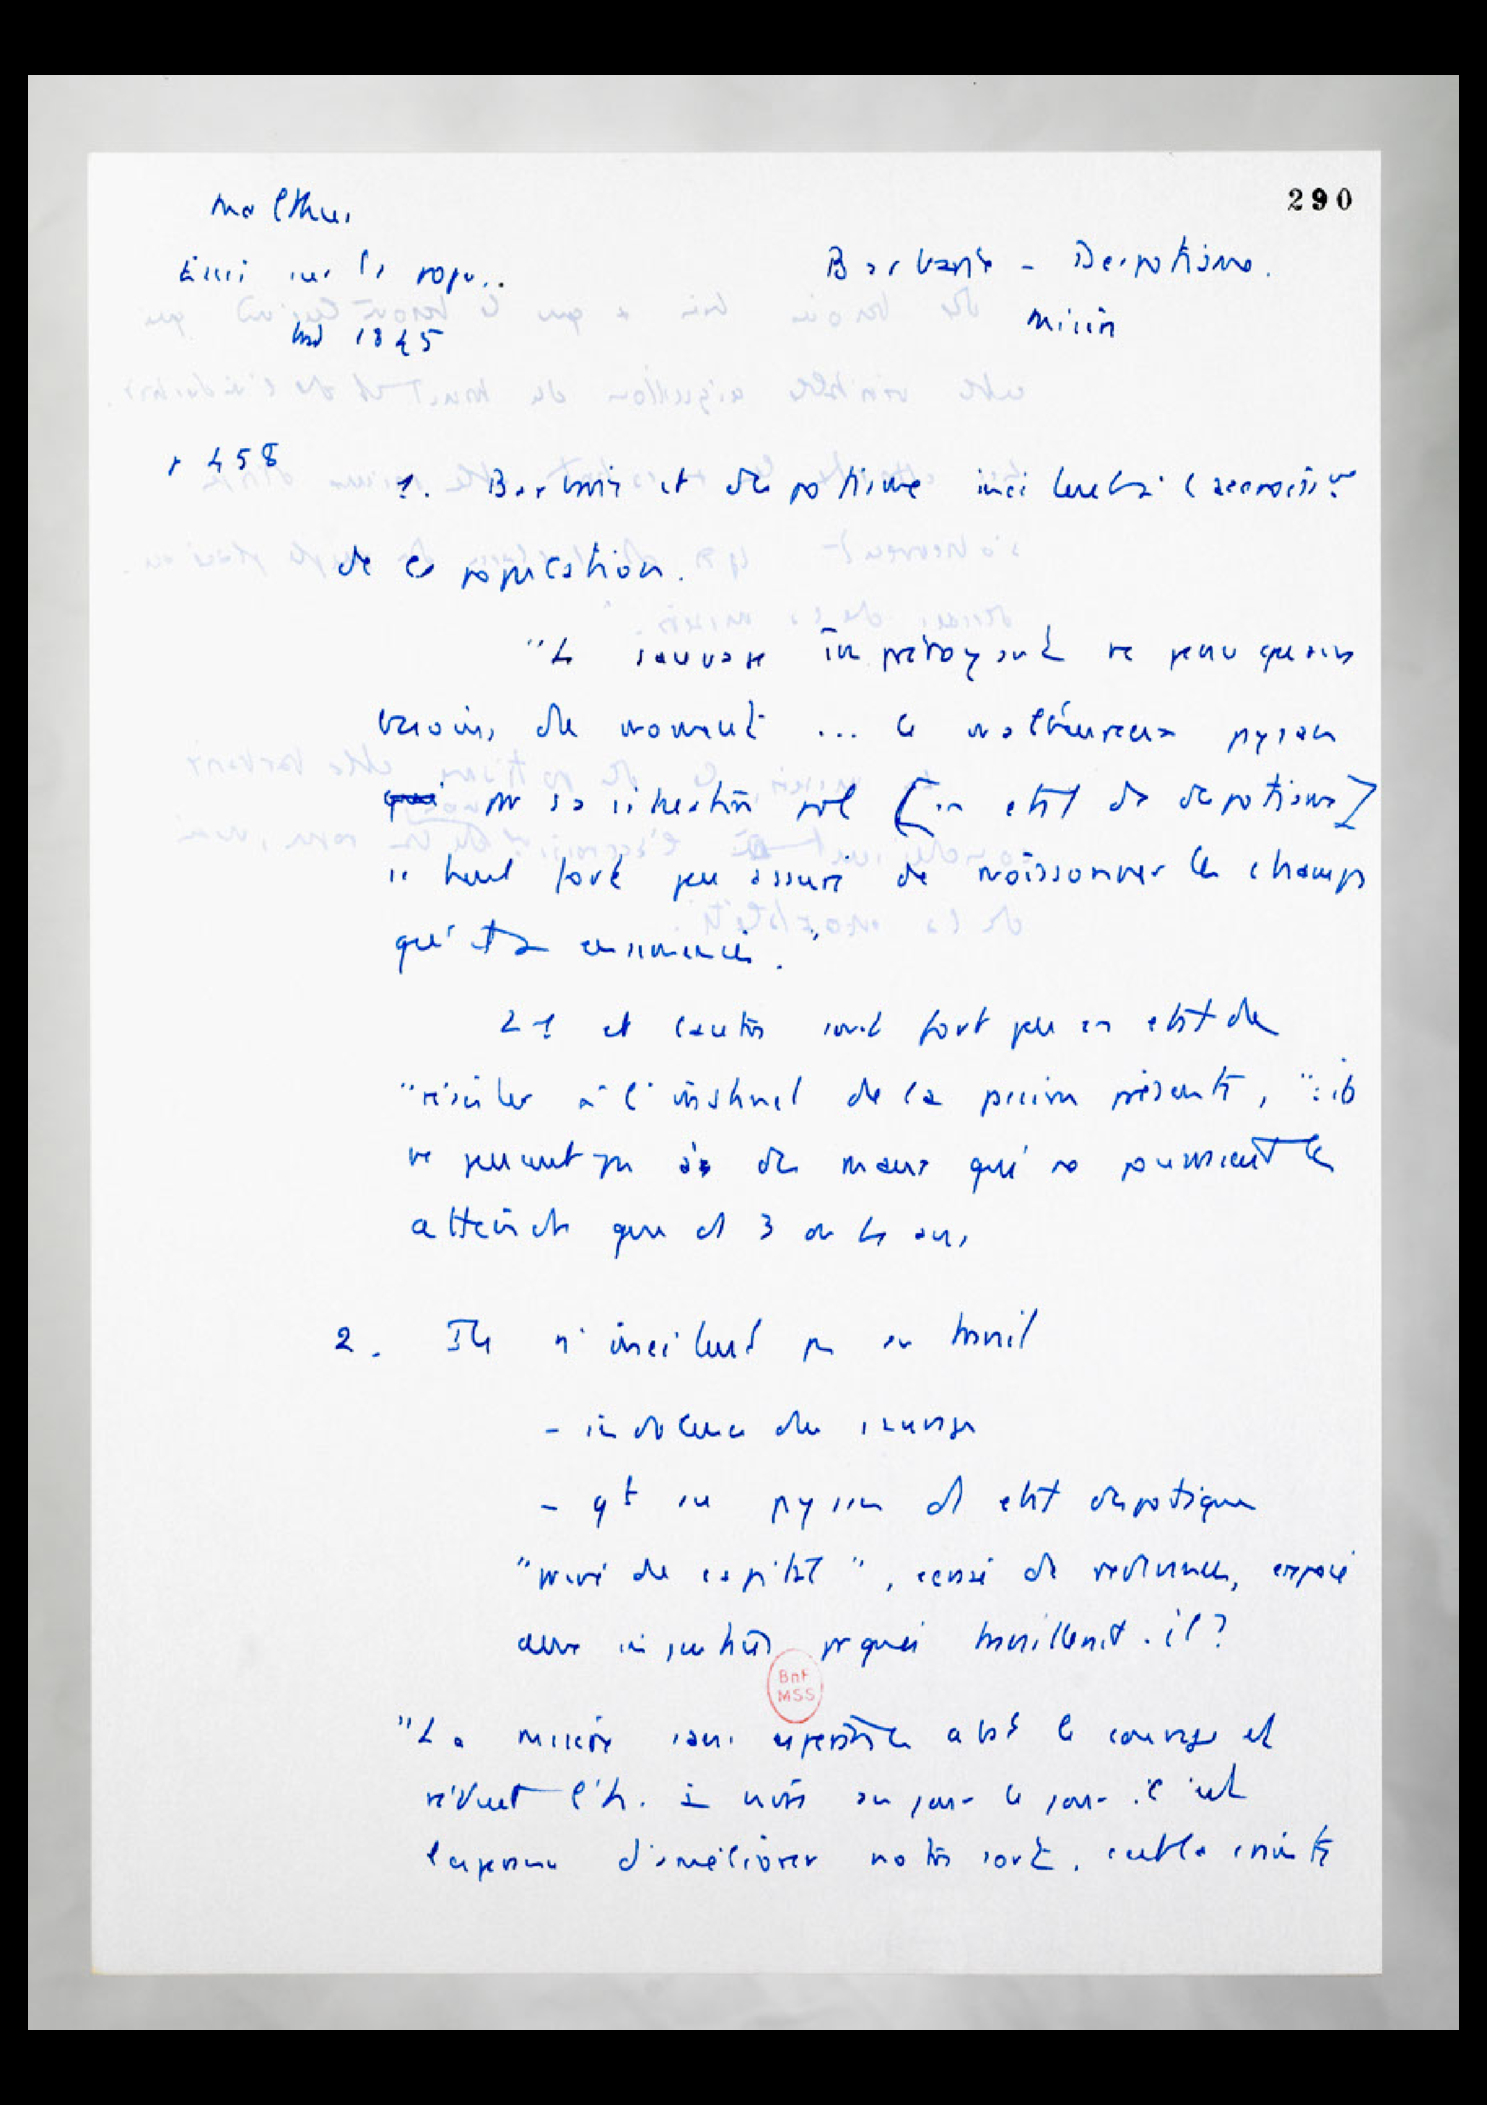 290
Malthus
Essai sur la popu..
trad 1845
Barbarie - Despotisme.
Misère
p 458
1. Barbarie et despotisme incitent à l'accroisst
de la population.
"Le sauvage imprévoyant ne pense qu'aux
besoins du moment ... le malheureux paysan
qui par sa situation pol [en état de despotisme]
se tient fort peu assuré de moissonner le champ
qu'il a ensemencé."
L'1 et l'autre sont fort peu en état de
"résister à l'instinct de la passion présente, ": ils
ne pensent pas à des maux qui ne pourraient les
atteindre que ds 3 ou 4 ans
2. Ils n'incitent pas au travail
- indolence du sauvage
- qt au paysan ds état despotique
"privé de capital", écrasé de redevances, exposé
aux insultes pquoi travaillerait-il?
"La misère sans espérance abat le courage et
réduit l'h. à vivre au jour le jour. C'est
l'espoir d'améliorer notre sort, c'est la crainte
BnF
MSS